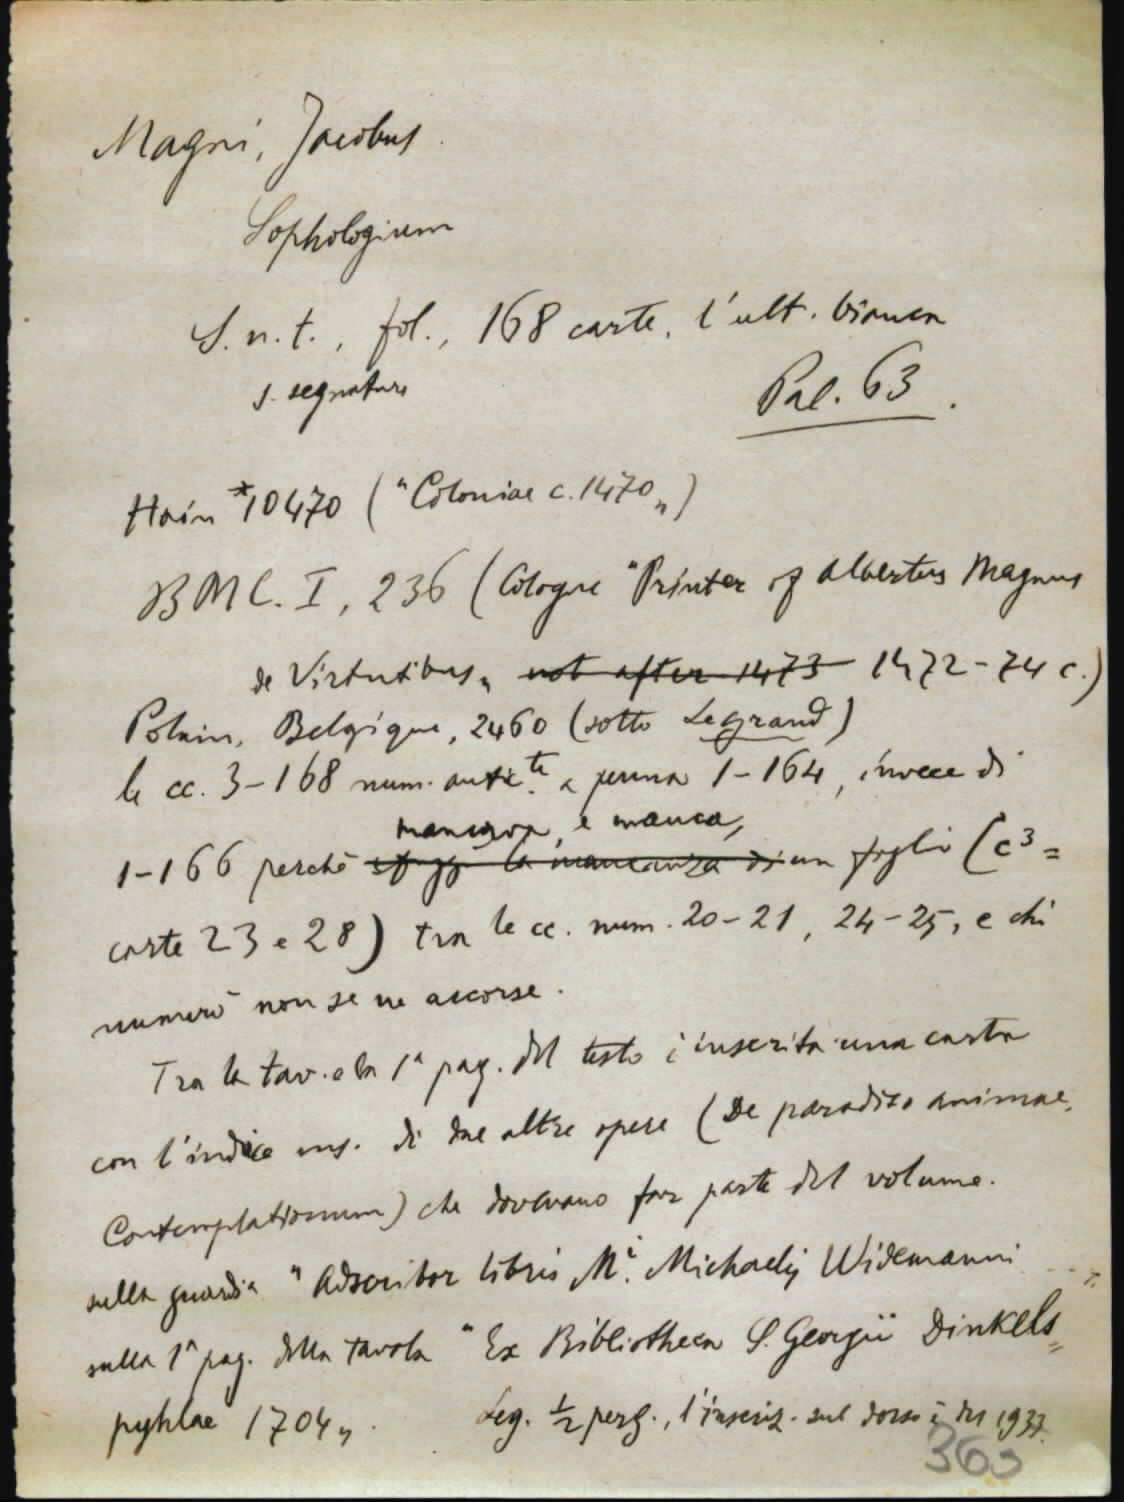 Magni, Jacobus.
Sophologium
S. n. t., fol., 168 carte, l'ult. bianca
s. segnature
Pal. 63.
Hain *10470 ("Coloniae c. 1470")
BMC. I, 236 (Cologne "Printer of Albertus Magnus
de Virtutibus" not after 1473 1472-74 c.)
Polain, Belgique, 2460 (sotto Legrand)
le cc. 3-168 num. antic.te a penna 1-164, invece di
mancava, e manca,
1-166 perchè la mancanza di un foglio (c3 =
carte 23 e 28) tra le cc. num. 20-21, 24-25, e chi
numerò non se ne accorse.
Tra la tav. e la 1ª pag. del testo è inserita una carta
con l'indice ms. di due altre opere (De paradiso animae,
Contemplationum) che dovevano far parte del volume.
sulla guardia "Adscribor libris Mi. Michaelij Widemanni
sulla 1ª pag. della tavola "Ex Bibliotheca S. Georgii Dinkels=
pyhlae 1704".
Leg. ½ perg., l'inscriz. sul dorso è del 1937.
363